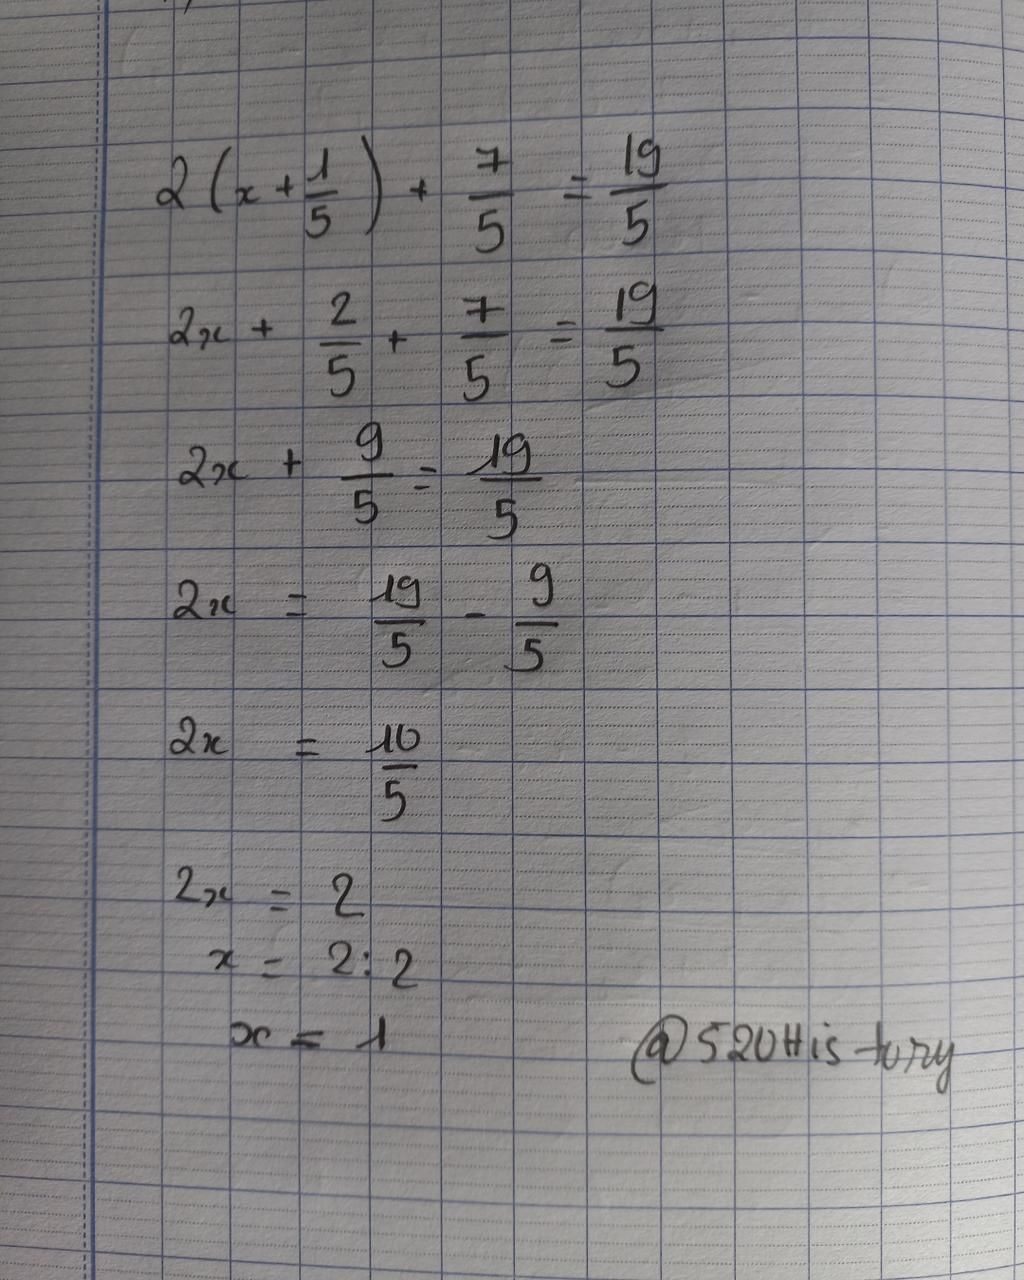 2(x + 1/5) + 7/5 = 19/5
2x + 2/5 + 7/5 = 19/5
2x + 9/5 = 19/5
2x = 19/5 - 9/5
2x = 10/5
2x = 2
x = 2:2
x = 1
@520History